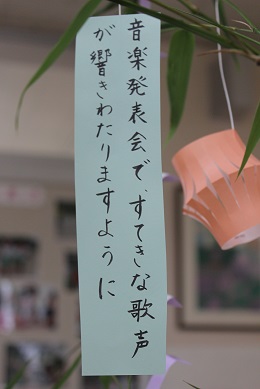 音楽発表会で、すてきな歌声
が響きわたりますように